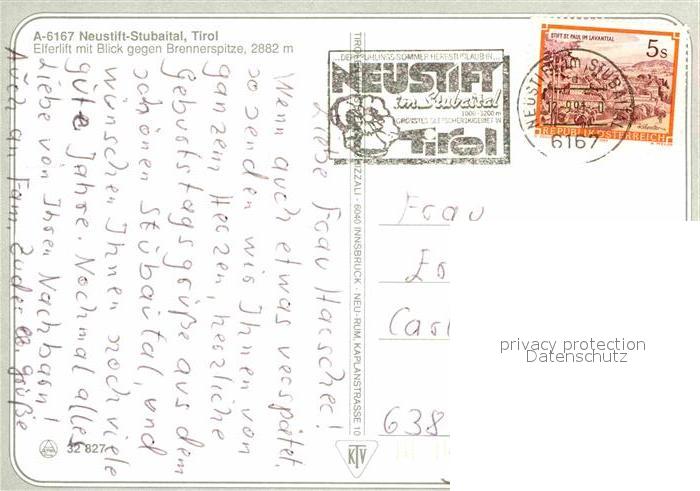 A-6167 Neustift-Stubaital, Tirol
Elferlift mit Blick gegen Brennerspitze, 2882 m
Liebe Frau Harscher!
Wenn auch etwas verspätet,
so senden wir Ihnen von
ganzem Herzen, herzliche
Gebutstagsgrüße aus dem
schönen Stubaital, und
wünschen Ihnen noch viele
gute Jahre. Nochmal alles
Liebe von Ihren Nachbarn!
Auch an Fam. lb. Grüße
32 827
NEUSTIFT
im Stubaital
1000 - 3200 m
GRÖSSTES GLETSCHERSKIGEBIET IN
Tirol
NEUSTIFT im STUBAITAL
6167
STIFT ST. PAUL IM LAVANTTAL
5 S
REPUBLIK ÖSTERREICH
6040 INNSBRUCK - NEU-RUM, KAPLANSTRASSE 10
KTV
Frau
638
privacy protection
Datenschutz